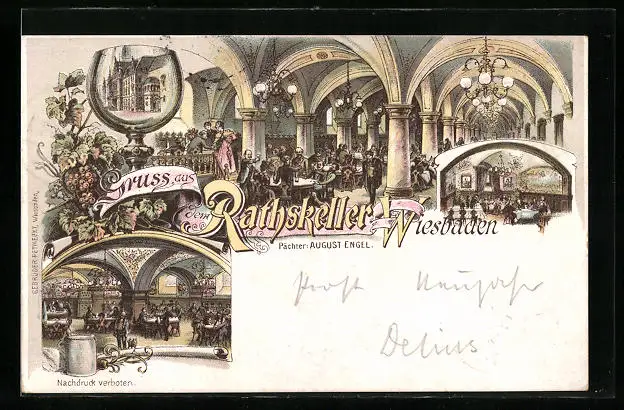 Gruss aus
dem Rathskeller Wiesbaden
Pächter: AUGUST ENGEL.
GEBRÜDER PETMECKY, Wiesbaden.
Prost Neujahr
Delius
Nachdruck verboten.